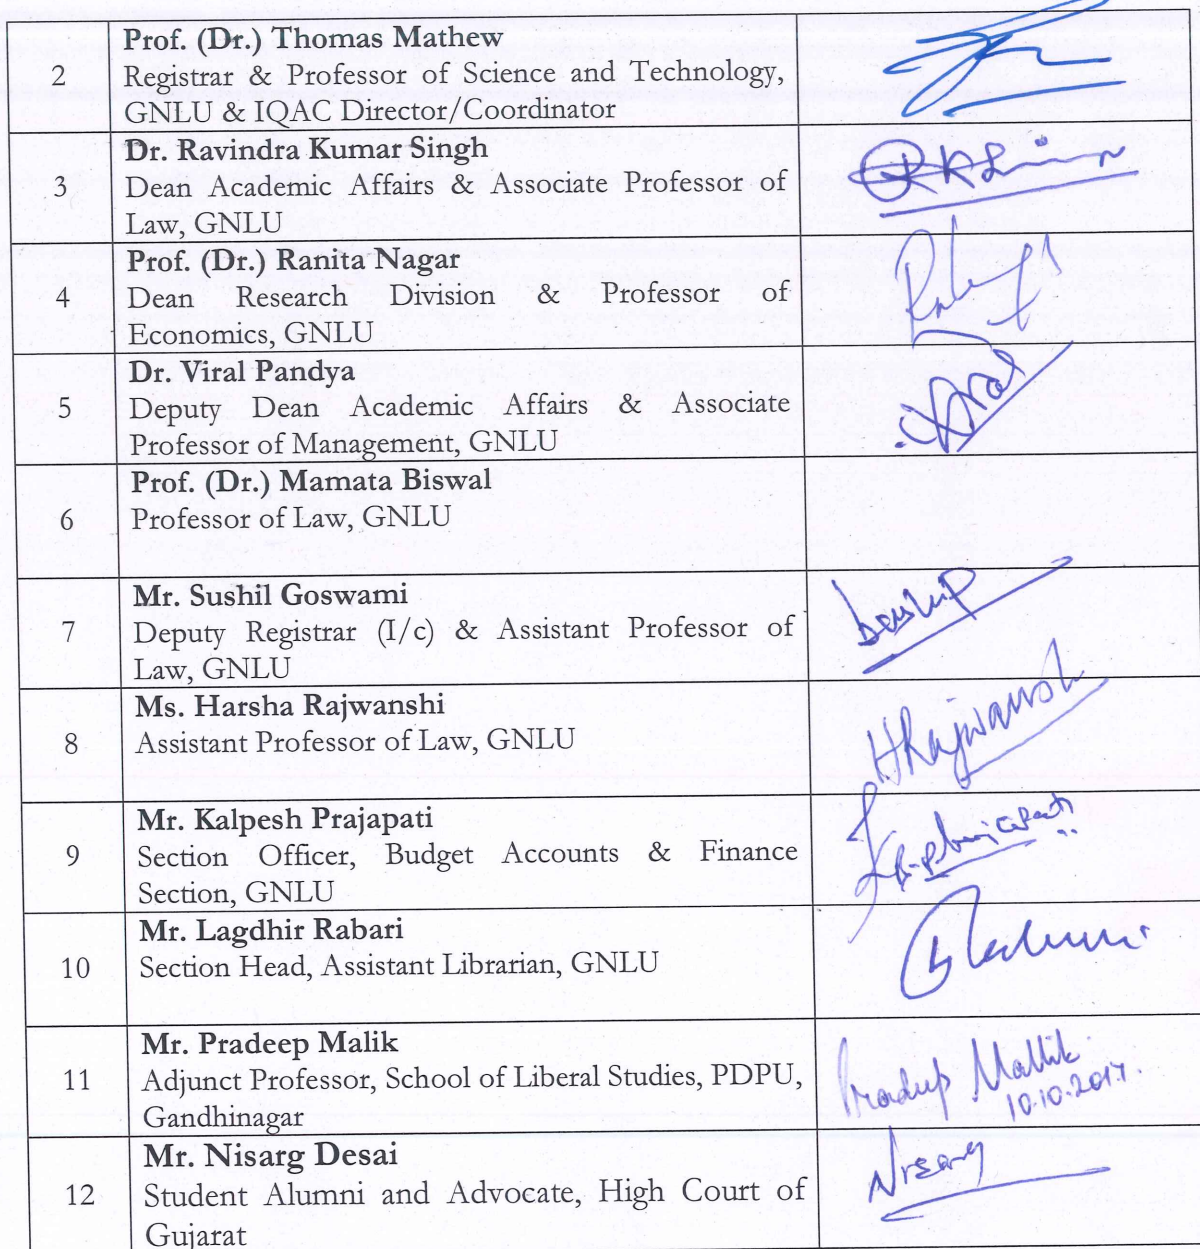 Prof. (Dr.) Thomas Mathew
2
Registrar & Professor of Science and Technology,
GNLU & IQAC Director/Coordinator
Dr. Ravindra Kumar Singh
3
Dean Academic Affairs & Associate Professor of
Law, GNLU
Prof. (Dr.) Ranita Nagar
4
Dean Research Division & Professor of
Economics, GNLU
Dr. Viral Pandya
5
Deputy Dean Academic Affairs & Associate
Professor of Management, GNLU
Prof. (Dr.) Mamata Biswal
6
Professor of Law, GNLU
Mr. Sushil Goswami
7
Deputy Registrar (I/c) & Assistant Professor of
Law, GNLU
Ms. Harsha Rajwanshi
8
Assistant Professor of Law, GNLU
HRajwansh
Mr. Kalpesh Prajapati
9
Section Officer, Budget Accounts & Finance
Section, GNLU
Mr. Lagdhir Rabari
10
Section Head, Assistant Librarian, GNLU
Mr. Pradeep Malik
11
Adjunct Professor, School of Liberal Studies, PDPU,
Gandhinagar
Pradeep Mallik
10.10.2017.
Mr. Nisarg Desai
12
Student Alumni and Advocate, High Court of
Gujarat
Nisarg